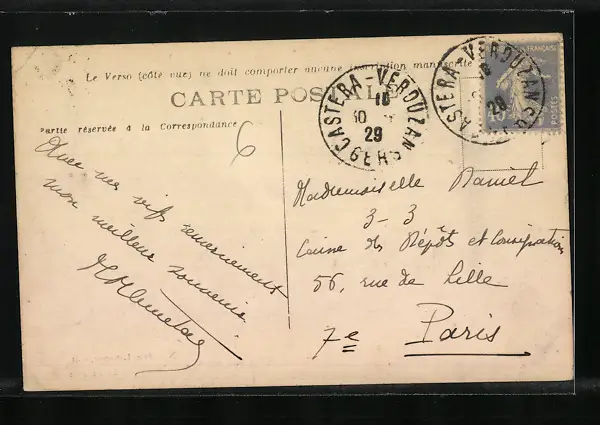 Le Verso (côté vue) ne doit comporter aucune inscription manuscrite
CARTE POSTALE
Partie réservée à la Correspondance
6
Avec mes vifs remerciements
mon meilleur souvenir
CASTERA-VERDUZAN
16
30
29
GERS
CASTERA-VERDUZAN
16
29
GERS
FRANÇAISE
POSTES
40
Mademoiselle Daniel
3-3
Caisse des Dépôts et Consignations
56, rue de Lille
7e Paris